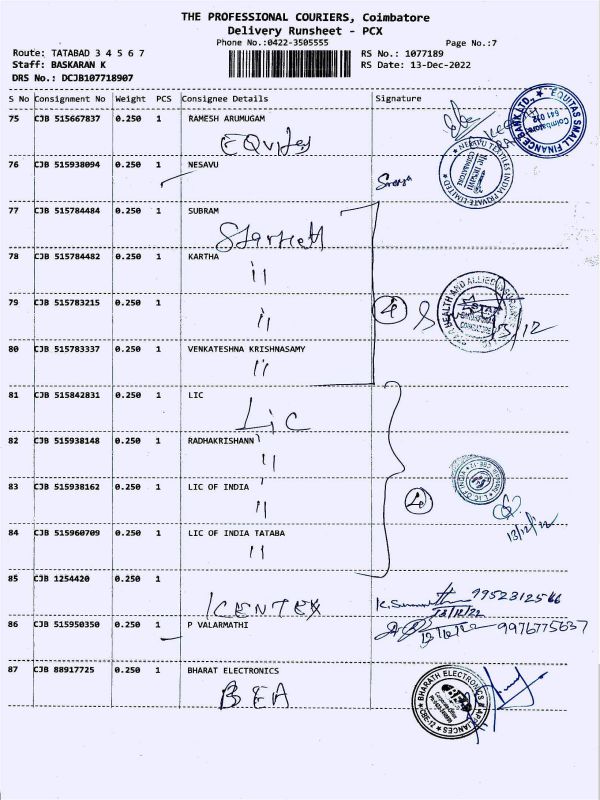 THE PROFESSIONAL COURIERS, Coimbatore
Delivery Runsheet - PCX
Phone No.:0422-3505555 Page No.:7
Route: TATABAD 3 4 5 6 7 RS No.: 1077189
Staff: BASKARAN K RS Date: 13-Dec-2022
DRS No.: DCJB107718907
S No Consignment No Weight PCS Consignee Details Signature
75 CJB 515667837 0.250 1 RAMESH ARUMUGAM
EQUITAS SMALL FINANCE BANK LTD.
Coimbatore
641 012
76 CJB 515938094 0.250 1 NESAVU
NESAVU TEXTILES INDIA PRIVATE LIMITED
77 CJB 515784484 0.250 1 SUBRAM
78 CJB 515784482 0.250 1 KARTHA
11
79 CJB 515783215 0.250 1
11
HEALTH AND ALLIED INSURANCE
STAR
4
13/12
80 CJB 515783337 0.250 1 VENKATESHNA KRISHNASAMY
11
81 CJB 515842831 0.250 1 LIC
Lic
82 CJB 515938148 0.250 1 RADHAKRISHANN
11
83 CJB 515938162 0.250 1 LIC OF INDIA
11
L I C OF INDIA
13/12/22
84 CJB 515960709 0.250 1 LIC OF INDIA TATABA
11
85 CJB 1254420 0.250 1
ICENTEX
9952312566
13/12/22
86 CJB 515950350 0.250 1 P VALARMATHI
9976775637
87 CJB 88917725 0.250 1 BHARAT ELECTRONICS
BEA
BHARATH ELECTRONICS & APPLIANCES
CBE-12